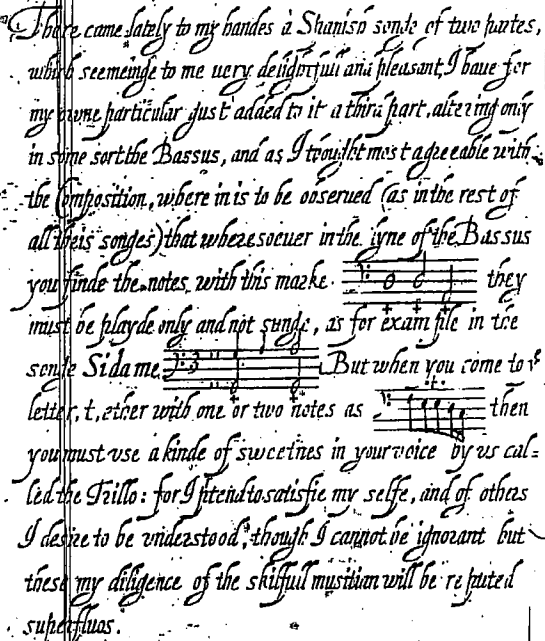 There came lately to my handes a Spanish songe of two partes,
which seemeinge to me very delightfull and pleasant, I haue for
my owne particular gust added to it a third part, altering only
in some sort the Bassus, and as I thought most agreeable with
the Composition, where in is to be obserued (as in the rest of
all theis songes) that wheresoeuer in the lyne of the Bassus
you finde the notes with this marke they
must be playde only and not sunge, as for example in the
songe Si da me. But when you come to yᵉ
letter, t, ether with one or two notes as then
you must vse a kinde of sweetnes in your voice by vs cal=
led the Trillo: for I ptend to satisfie my selfe, and of others
I desire to be vnderstood, though I cannot be ignorant but
these my diligence of the skilfull musitian will be reputed
superfluos.